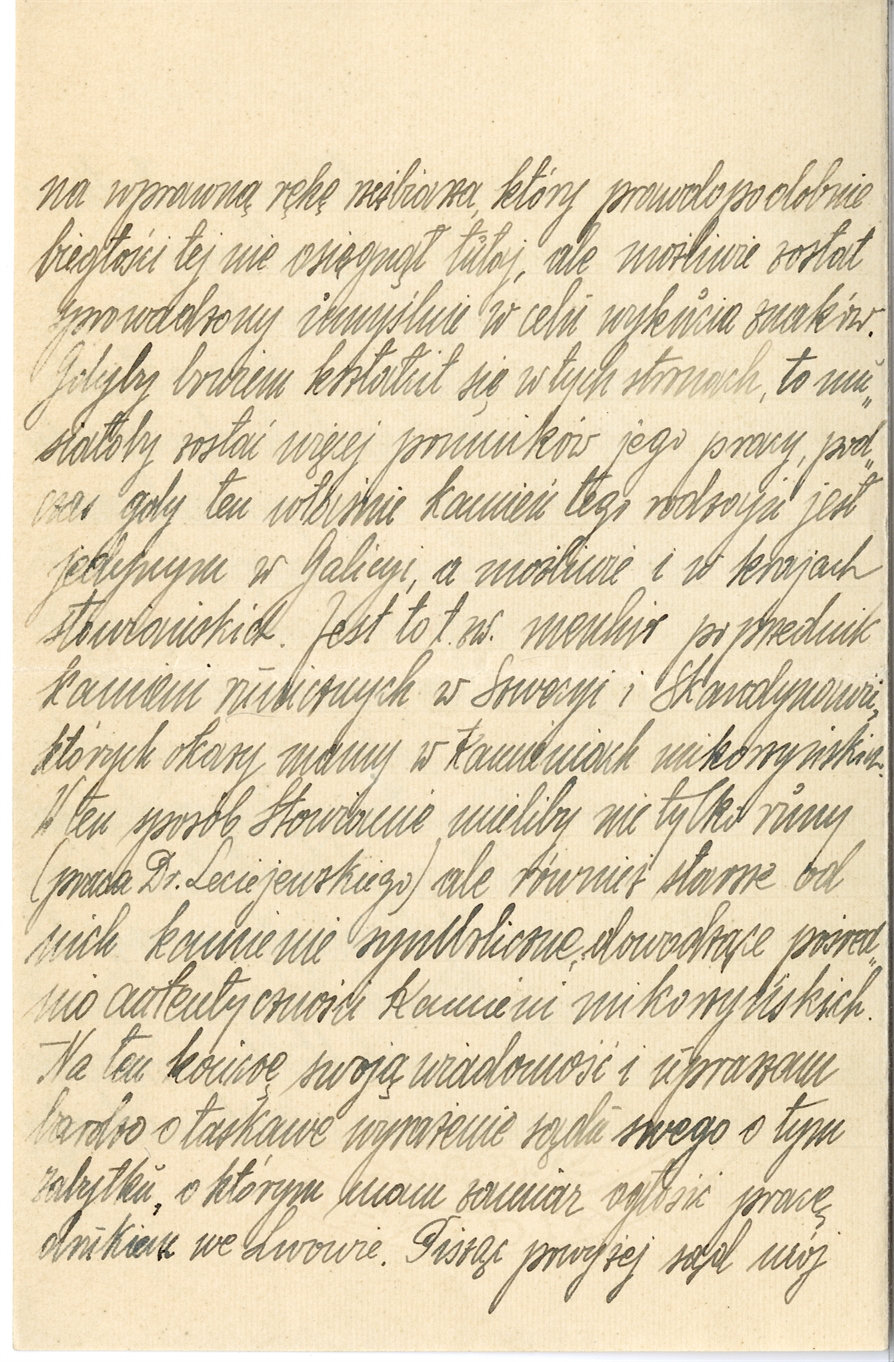 na wprawną rękę rzeźbiarza, który prawdopodobnie
biegłości tej nie osięgnął tutaj, ale możliwie został
sprowadzony umyślnie w celu wykucia znaków.
Gdyby bowiem kształcił się w tych stronach, to mu„
siałoby zostać więcej pomników jego pracy, pod„
czas gdy ten właśnie kamień tego rodzaju jest
jedynym w Galicyi, a możliwie i w krajach
słowiańskich. Jest to t. zw. menhir poprzednik
kamieni runicznych w Szwecyi i Skandynawii,
których okazy mamy w kamieniach mikorzyńskich.
W ten sposób Słowianie mieliby nie tylko runy
(praca Dr. Leciejewskiego) ale również starsze od
nich kamienie symboliczne, dowodzące pośred„
nio autentyczności kamieni mikorzyńskich.
Na tem kończę swoją wiadomość i upraszam
bardzo o łaskawe wyrażenie sądu swego o tym
zabytku, o którym mam zamiar ogłosić pracę
drukiem we Lwowie. Pisząc powyżej sąd mój